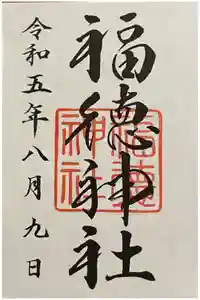 福徳神社
福徳
神社
令和五年八月九日